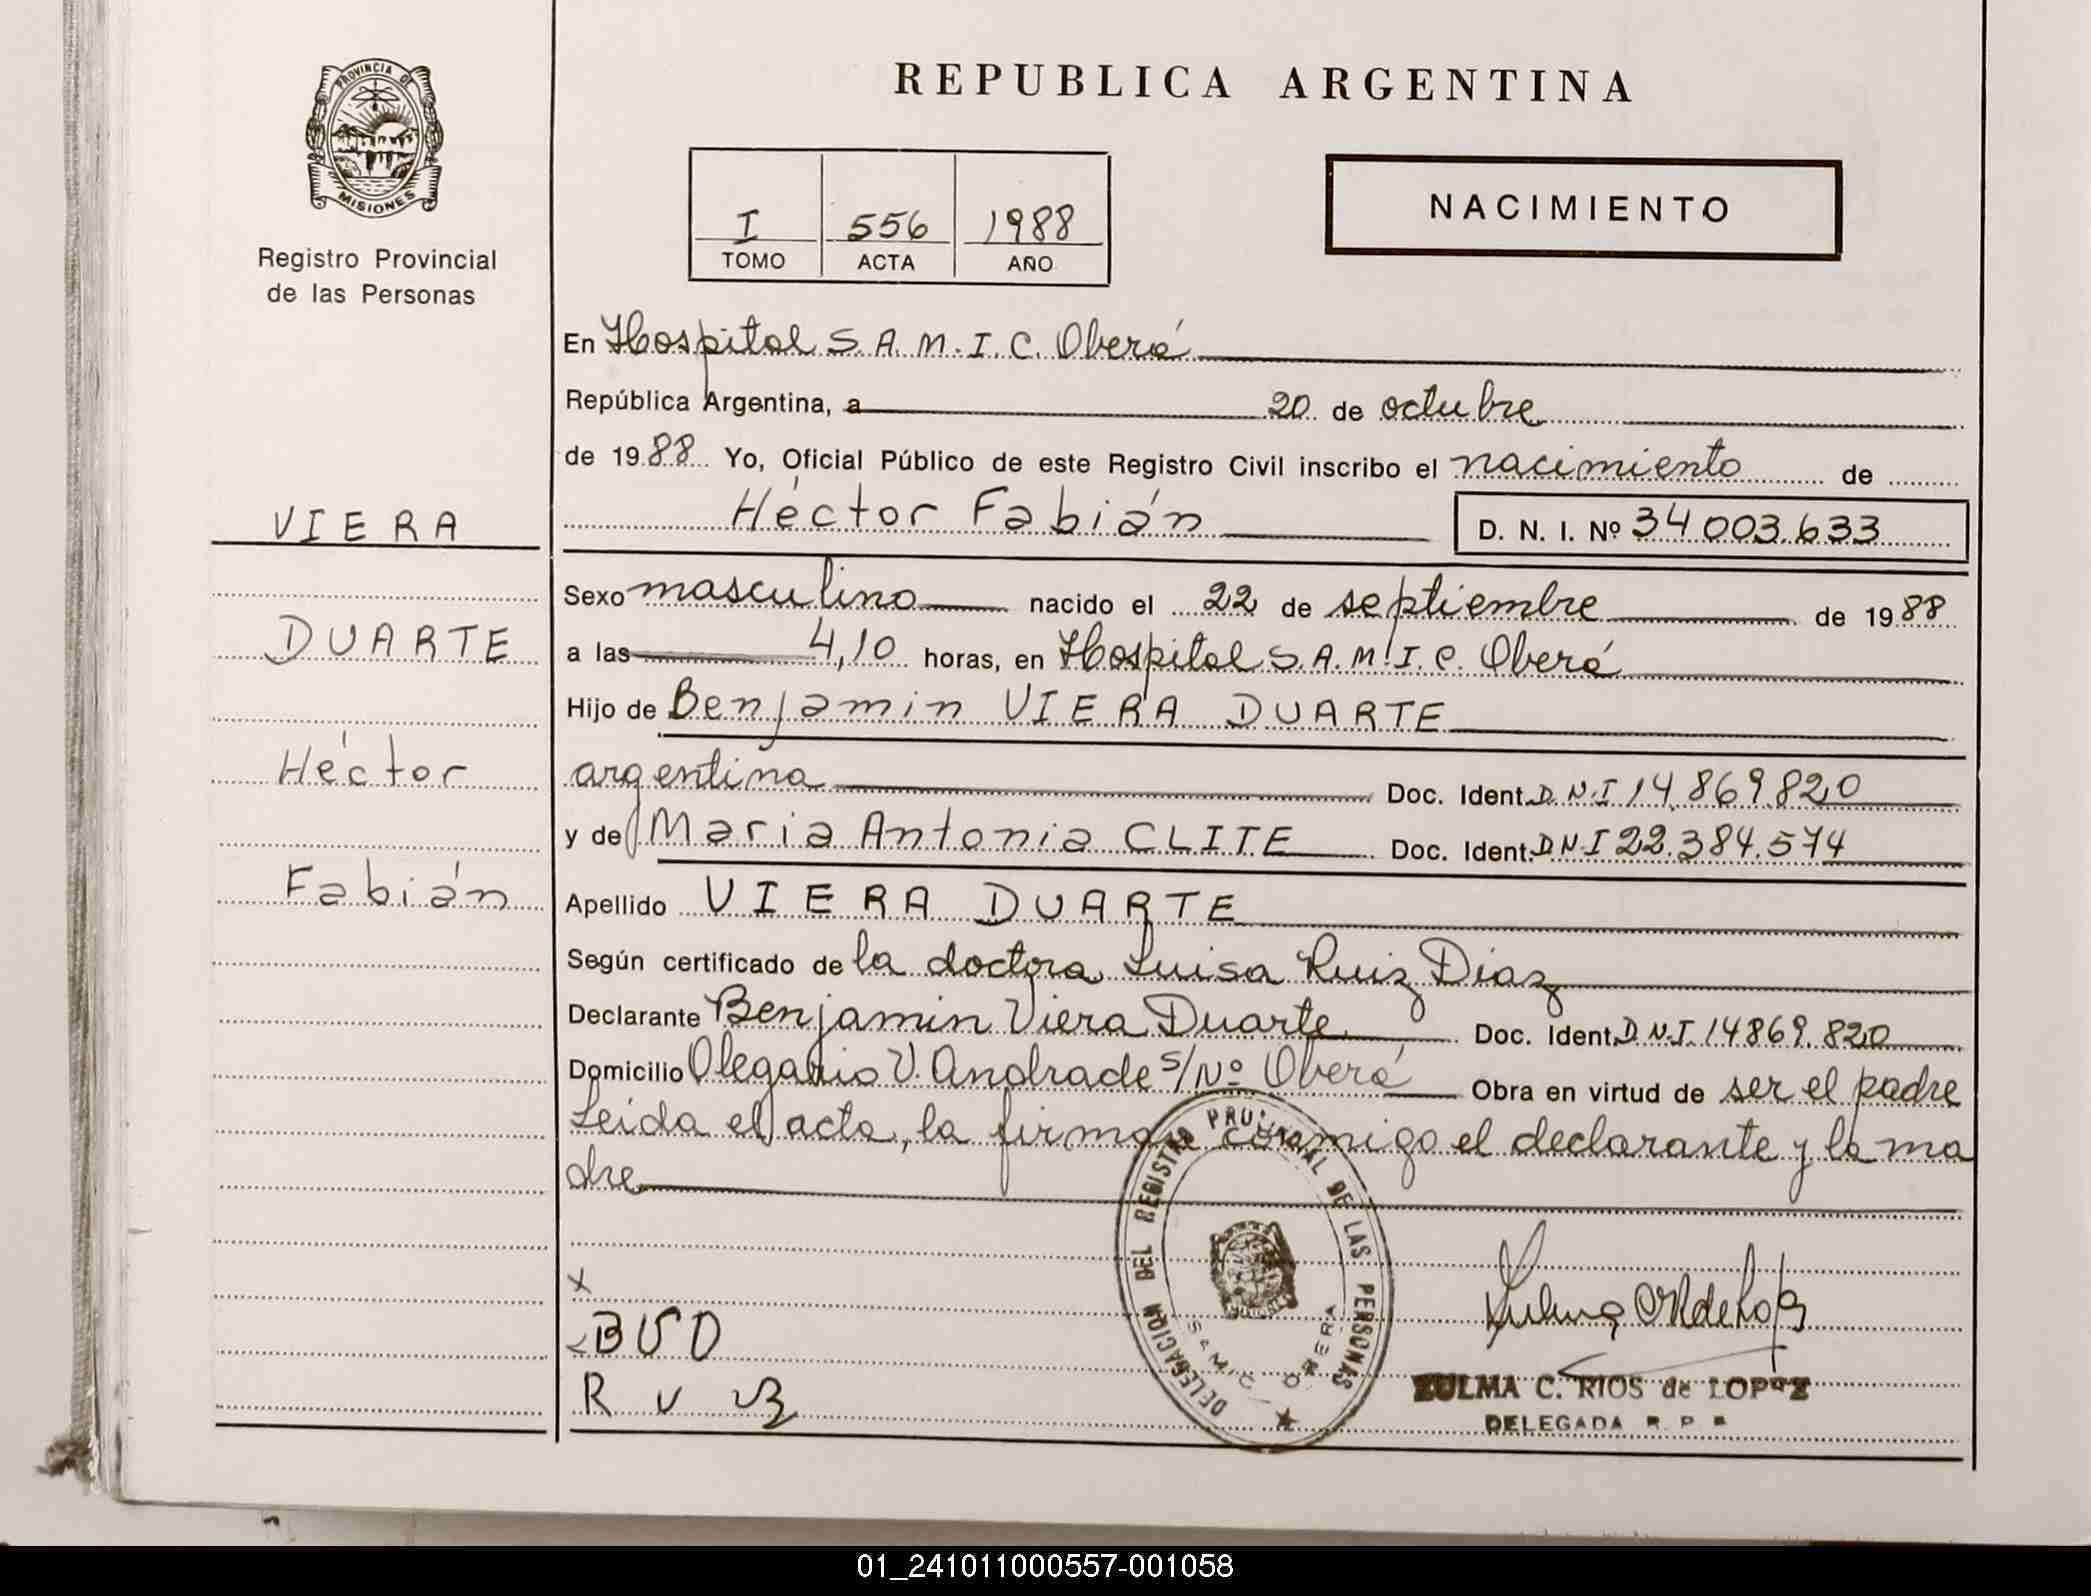 PROVINCIA DE
MISIONES
Registro Provincial
de las Personas
VIERA
DUARTE
Héctor
Fabián
REPUBLICA ARGENTINA
I 556 1988
TOMO ACTA AÑO
NACIMIENTO
En Hospital S.A.M.I.C. Oberá
República Argentina, a 20 de octubre
de 1988 Yo, Oficial Público de este Registro Civil inscribo el nacimiento de
Héctor Fabián D. N. I. Nº 34003.633
Sexo masculino nacido el 22 de septiembre de 1988
a las 4,10 horas, en Hospital S.A.M.I.C. Oberá
Hijo de Benjamin VIERA DUARTE
argentina Doc. Ident. D.N.I 14.869.820
y de Maria Antonia CLITE Doc. Ident. DNI 22.384.574
Apellido VIERA DUARTE
Según certificado de la doctora Luisa Ruiz Diaz
Declarante Benjamin Viera Duarte Doc. Ident. D.N.I. 14869.820
Domicilio Olegario V. Andrade s/Nº Oberá Obra en virtud de ser el padre
Leida el acta, la firman conmigo el declarante y la ma
dre
DELEGACION DEL REGISTRO PROVINCIAL DE LAS PERSONAS
SAMIC OBERA
X
BVD
ZULMA C. RIOS de LOPEZ
DELEGADA R. P. P.
01_241011000557-001058